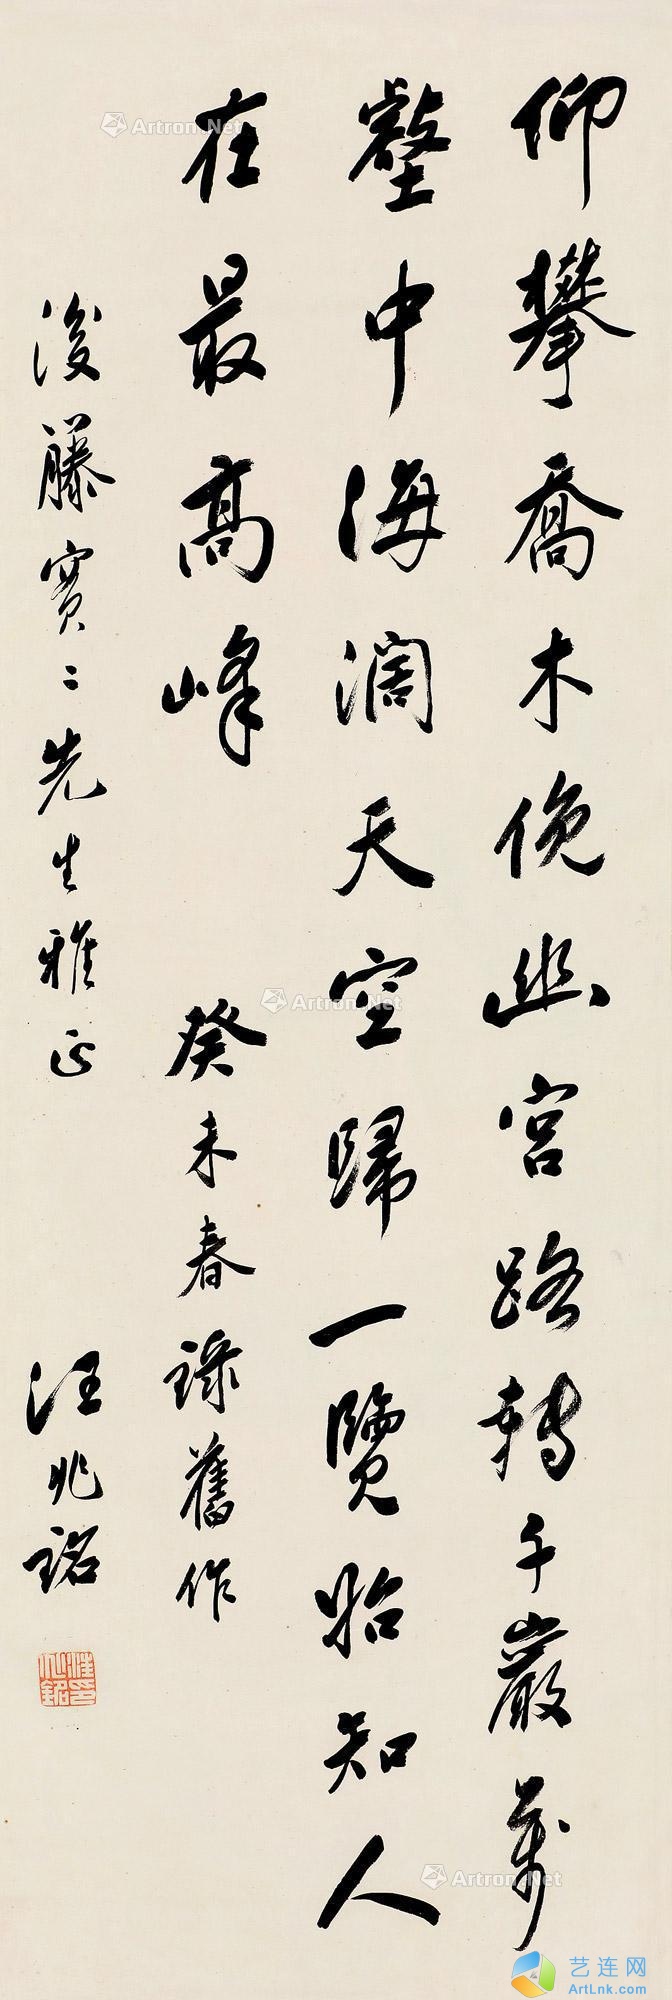 仰攀喬木俛幽宮路轉千巖萬
壑中海濶天空歸一覽始知人
在最高峰 癸未春録舊作
後藤實二先生雅正 汪兆銘
汪兆銘印
Artron.Net
Artron.Net
Artron.Net
艺连网
ArtLnk.com